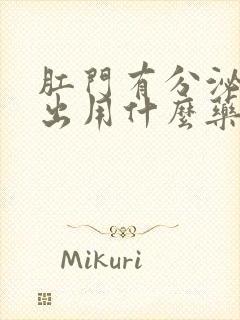 肛門有分泌
出用什麼藥
Mikuri